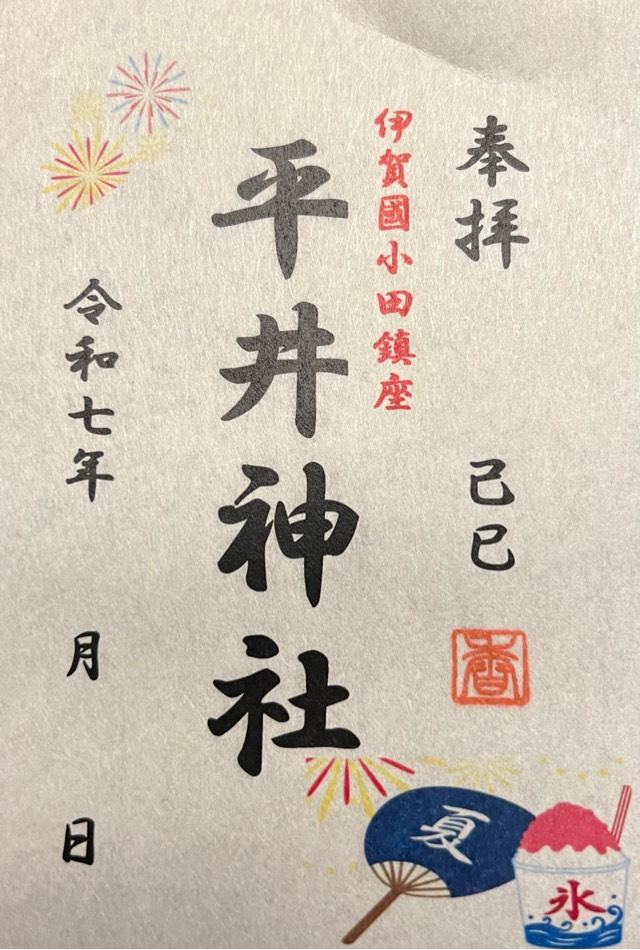 奉拝
己巳
香
伊賀國小田鎮座
平井神社
令和七年
月
日
夏
氷